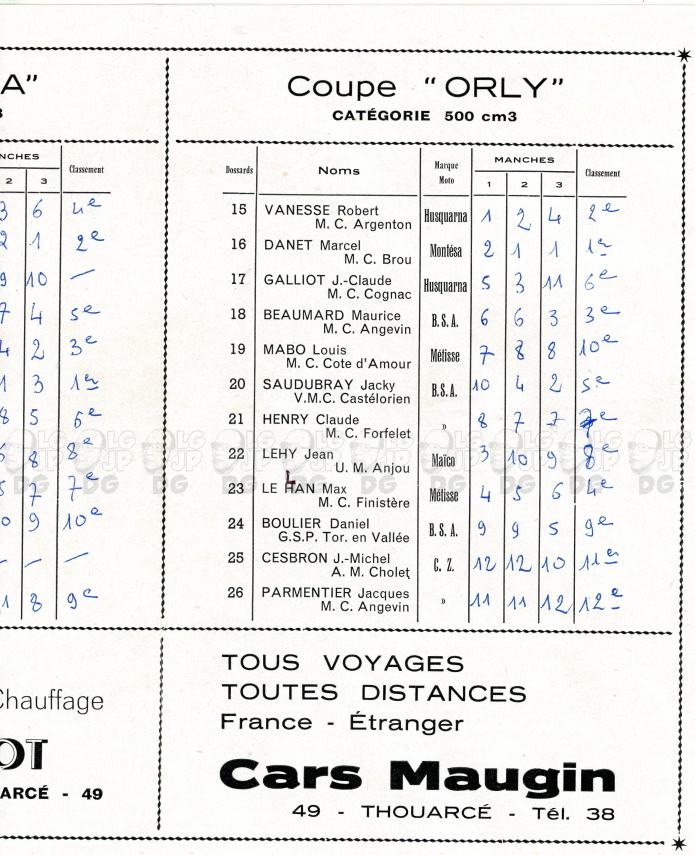 A”
3
NCHES
Classement
2 3
3 6 4e
2 1 2e
9 10 —
7 4 5e
4 2 3e
1 3 1er
8 5 6e
8 8e
7 7e
0 9 10e
— — —
1 8 9e
Chauffage
OT
ARCÉ - 49
Coupe “ORLY”
CATÉGORIE 500 cm3
Dossards Noms Marque Moto MANCHES Classement
1 2 3
15 VANESSE Robert Husquarna 1 2 4 2e
M. C. Argenton
16 DANET Marcel Montésa 2 1 1 1er
M. C. Brou
17 GALLIOT J.-Claude Husquarna 5 3 11 6e
M. C. Cognac
18 BEAUMARD Maurice B.S.A. 6 6 3 3e
M. C. Angevin
19 MABO Louis Métisse 7 8 8 10e
M. C. Cote d'Amour
20 SAUDUBRAY Jacky B.S.A. 10 4 2 5e
V.M.C. Castélorien
21 HENRY Claude » 8 7 7 7e
M. C. Forfelet
22 LEHY Jean Maïco 3 10 9 8e
U. M. Anjou
23 LE HAN Max Métisse 4 5 6 4e
M. C. Finistère
24 BOULIER Daniel B.S.A. 9 9 5 9e
G.S.P. Tor. en Vallée
25 CESBRON J.-Michel C. Z. 12 12 10 11e
A. M. Cholet
26 PARMENTIER Jacques » 11 11 12 12e
M. C. Angevin
TOUS VOYAGES
TOUTES DISTANCES
France - Étranger
Cars Maugin
49 - THOUARCÉ - Tél. 38